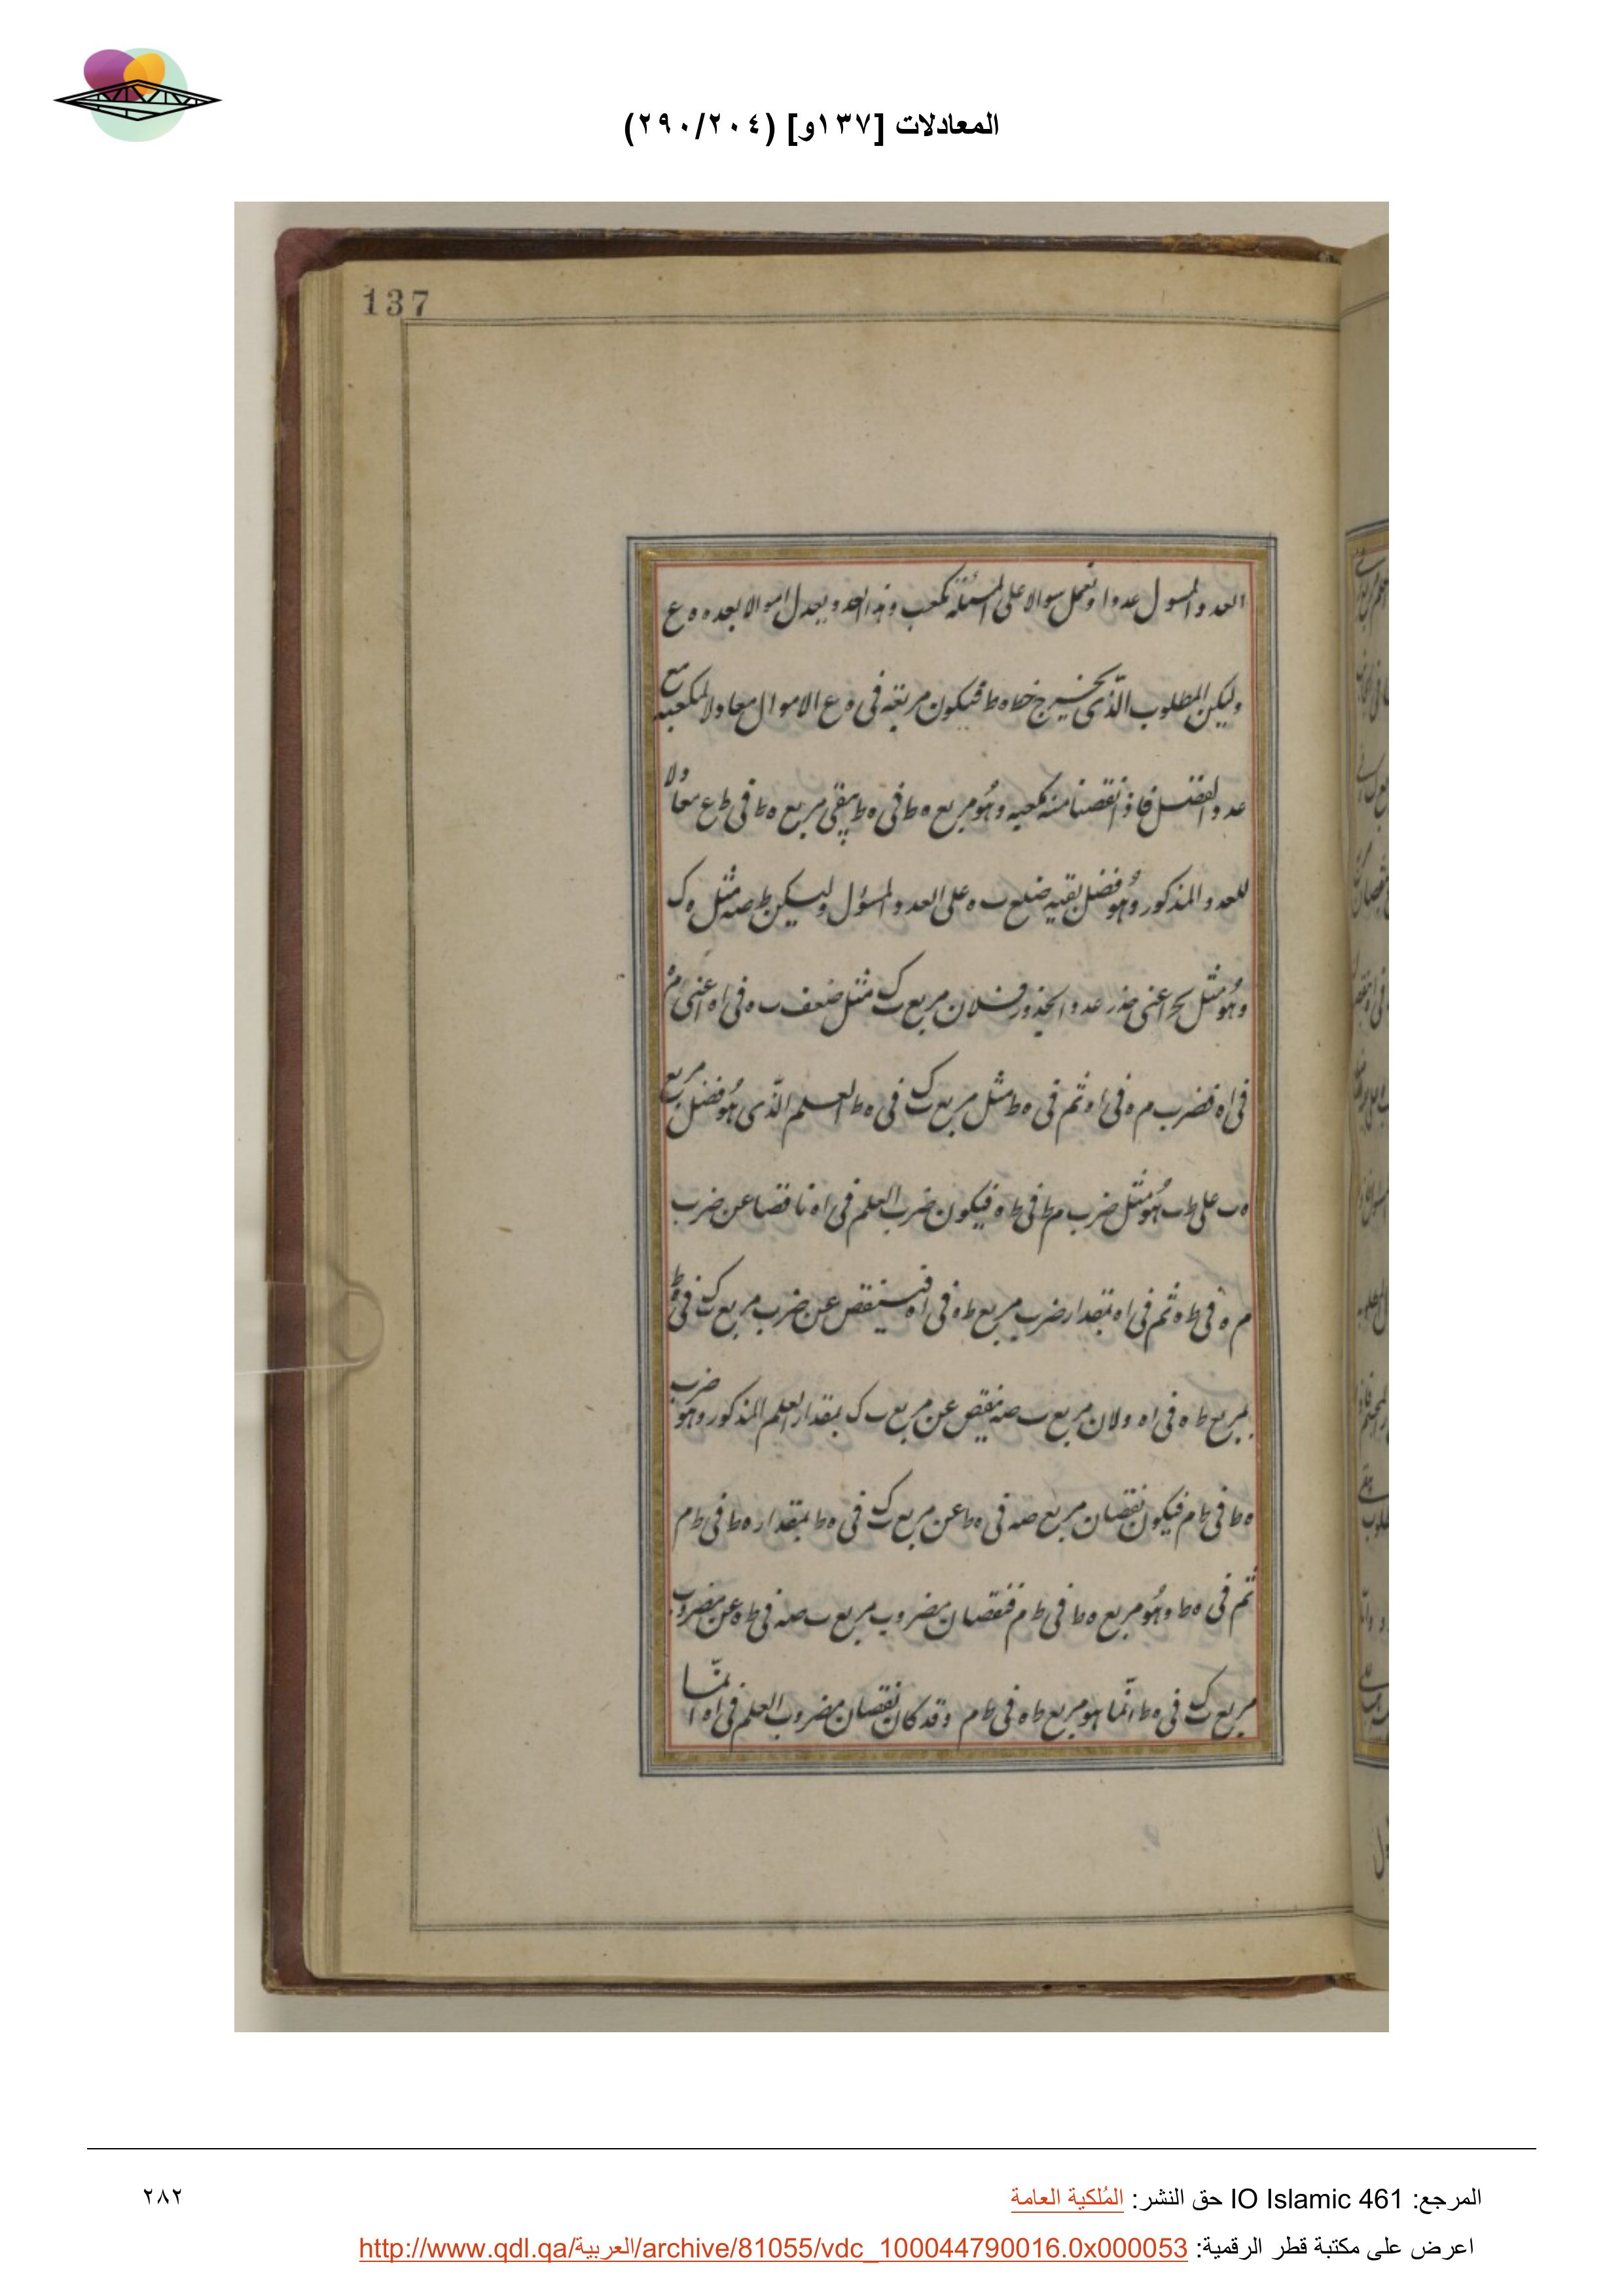 المعادلات [١٣٧و] (٢٩٠/٢٠٤)
137
العدد المسول عددا و نعمل سوالا على المسئلة كمعب و هذا العدد يعدل اموالا بعده ه ع
وليكن المطلوب الذى يخرج خط ه ط فيكون مربعه فى ه ع الاموال معادلا لمكعبه مع
عدد الفضل فاذا نقصنا منه كمعبه وهو مربع ه ط فى ه ط يبقى مربع ه ط فى ط ع معادلا
للعدد المذكور وهو فضل بقيه ضلع ب ه على العدد المسؤل وليكن ط صه مثل ه ک
وهو مثل اعنى جذر عدد الجذور فلان مربع ب ک مثل ضعف ب ه فى اه اعنى م ه
فى اه فضرب م ه فى اه ثم فى ه ط مثل مربع ب ک فى ه ط العلم الذى هو فضل مربع
ه ب على ط ب هو مثل ضرب م ط فى ط ه فيكون ضرب العلم فى اه ناقصا عن ضرب
م ه فى ط ه ثم فى اه بمقدار ضرب مربع ط ه فى اه فينقص عن ضرب مربع ب ک فى ه ط
بمربع ط ه فى اه ولان مربع ب صه نقص عن مربع ب ک بمقدار العلم المذكور وهو ضرب
ه ط فى ط م فيكون نقصان مربع صه فى ه ط عن مربع ب ک فى ه ط بمقدار ه ط فى ط م
ثم فى ه ط وهو مربع ه ط فى ط م فنقصان مضروب مربع ب صه فى ط ه عن مضروب
مربع ب ک فى ه ط انما هو مربع ط ه فى ط م وقد كان نقصان مضروب العلم فى اه انما
المرجع: IO Islamic 461 حق النشر: المُلكية العامة
٢٨٢
اعرض على مكتبة قطر الرقمية: http://www.qdl.qa/العربية/archive/81055/vdc_100044790016.0x000053